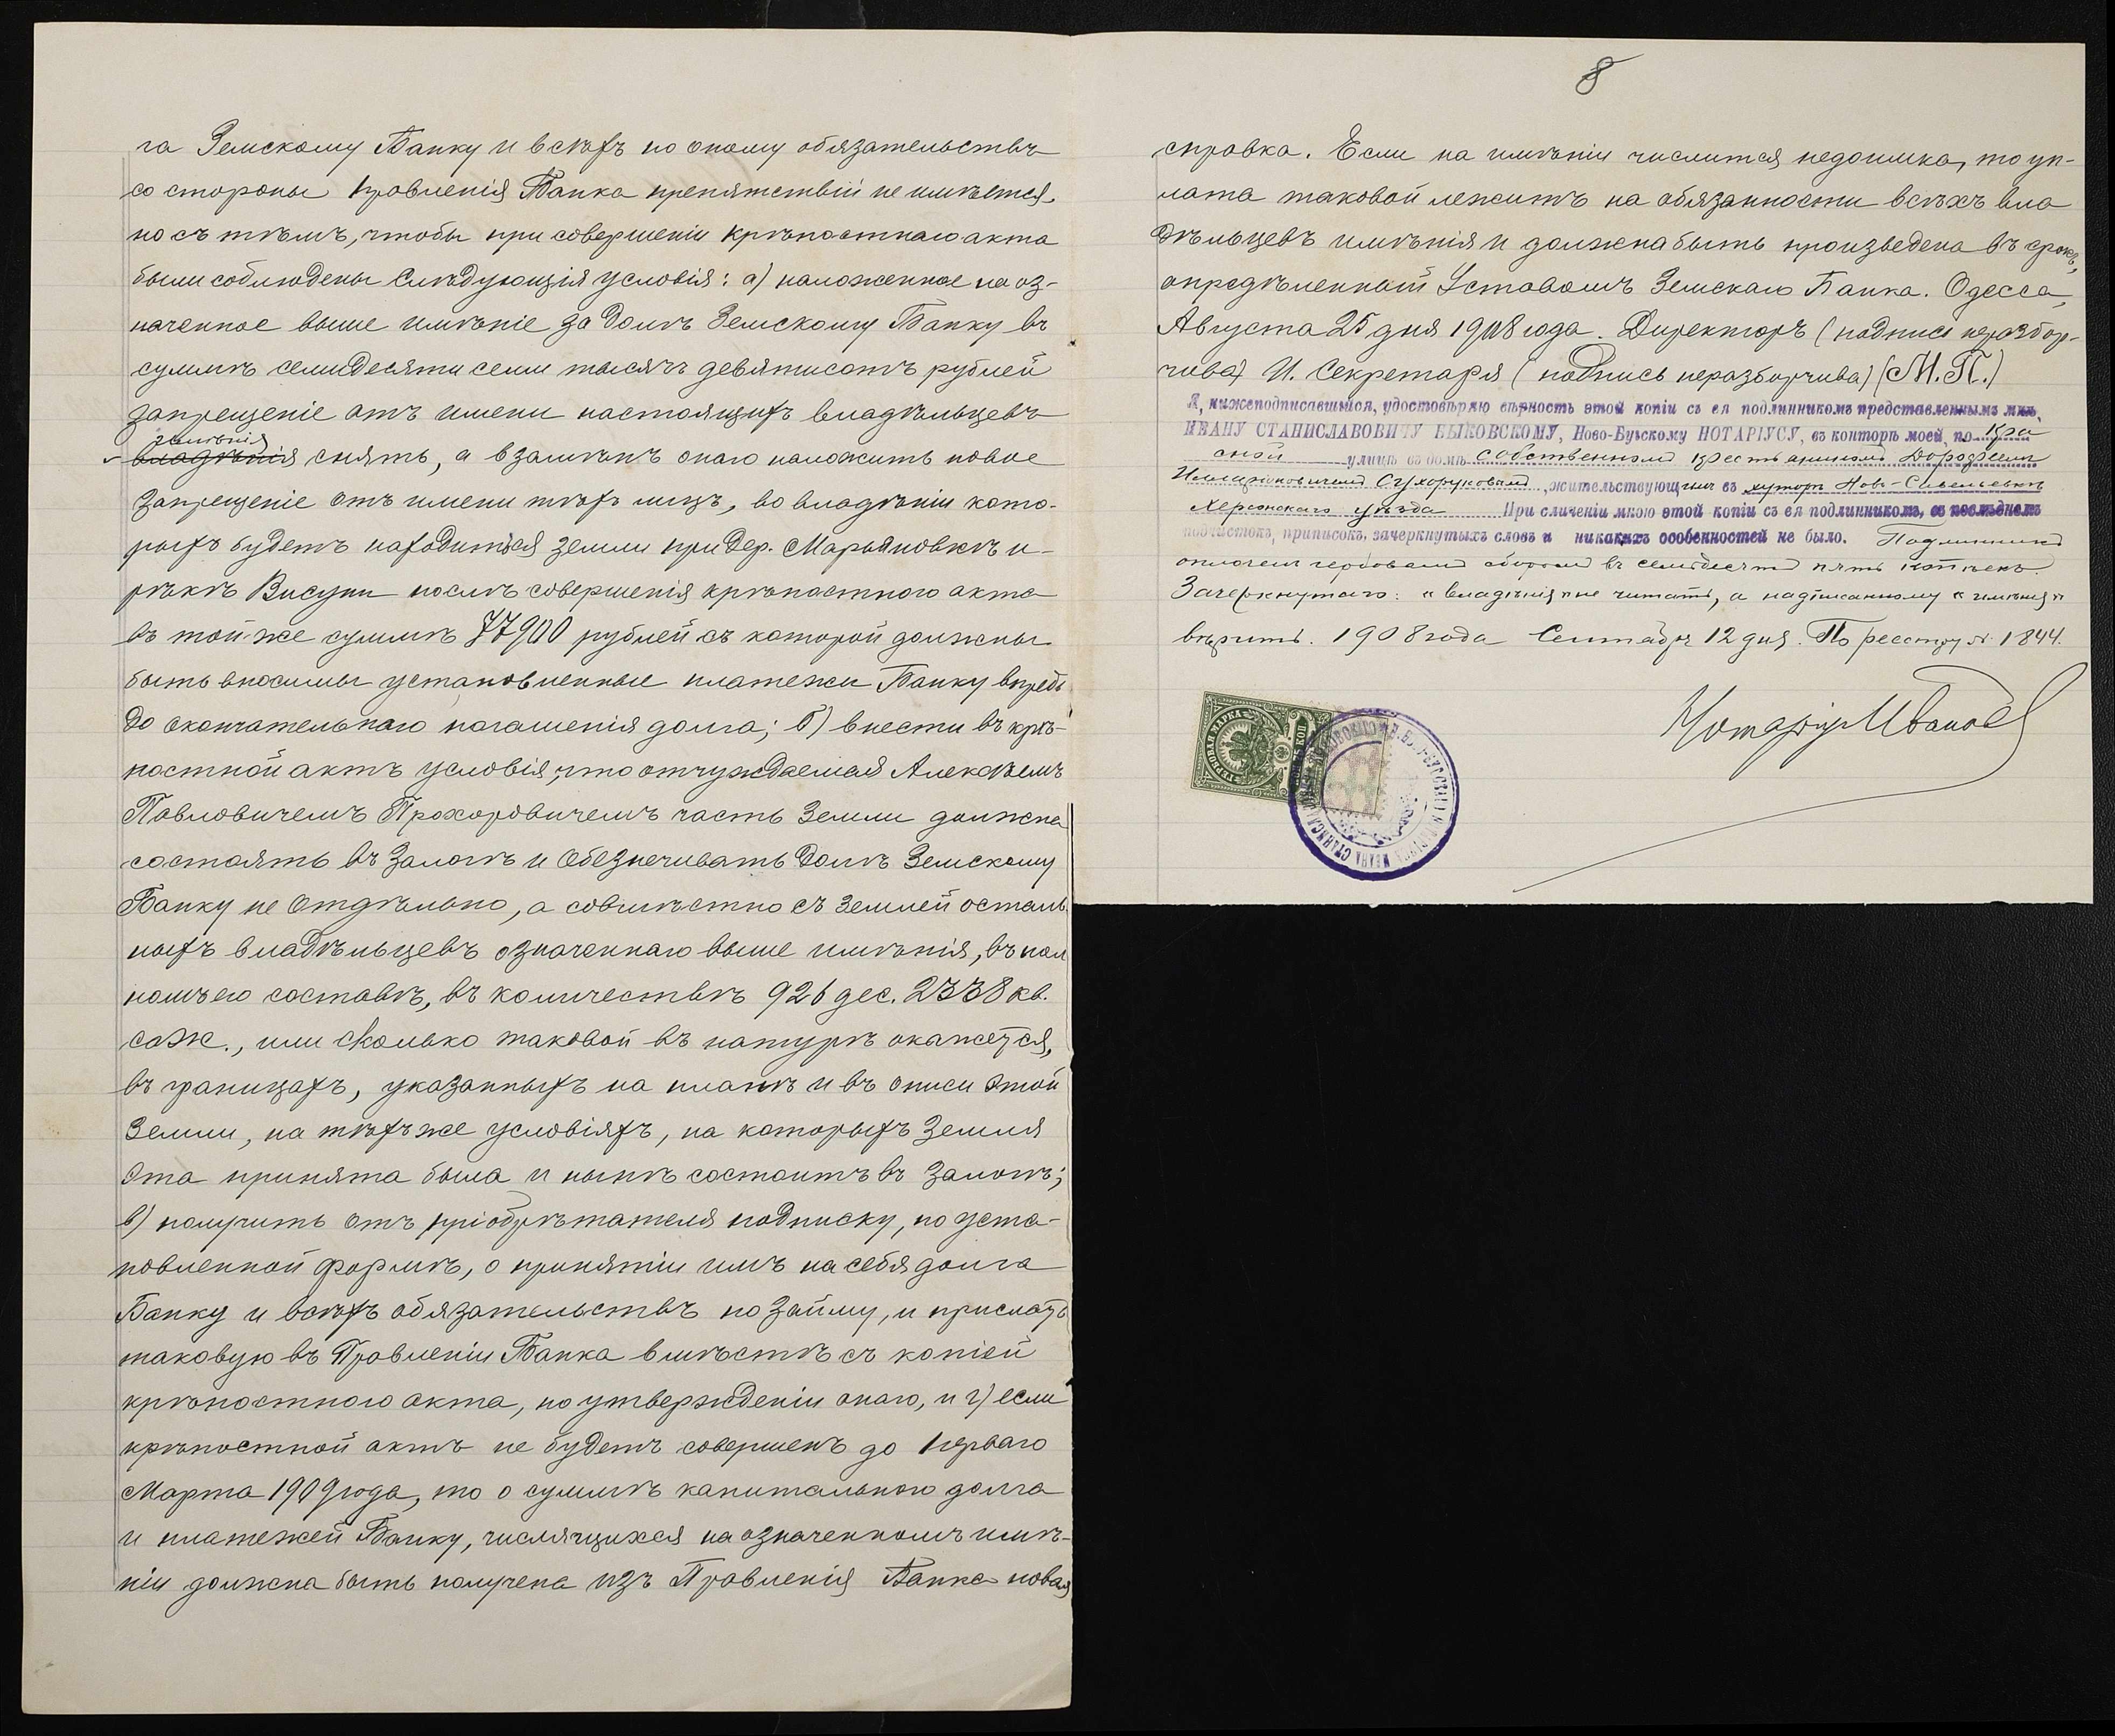 га Земскому Банку и всѣхъ по оному обязательствъ
со стороны Правленія Банка препятствій не имѣется,
но съ тѣмъ, чтобы при совершеніи крѣпостнаго акта
были соблюдены слѣдующія условія: а) наложенное на оз-
наченное выше имѣніе за долгъ Земскому Банку въ
суммѣ семидесяти семи тысячъ девятисотъ рублей
запрещеніе отъ имени настоящихъ владѣльцевъ
имѣнія
владѣнія снять, а взамѣнъ онаго наложить новое
запрещеніе отъ имени тѣхъ лицъ, во владѣніи кото-
рыхъ будетъ находиться земли при дер. Марьяновкѣ и
рѣкѣ Висуни послѣ совершенія крѣпостного акта
въ той-же суммѣ 77900 рублей съ которой должны
быть вносимы установленные платежи Банку впредь
до окончательнаго погашенія долга; б) внести въ крѣ-
постной актъ условія, что отчуждаемая Алексѣемъ
Павловичемъ Прохоровичемъ часть земли должна
состоять въ залогѣ и обезпечивать долгъ Земскому
Банку не отдѣльно, а совмѣстно съ землей осталь
ныхъ владѣльцевъ означеннаго выше имѣнія, въ пол
номъ его составѣ, въ количествѣ 926 дес. 2338 кв.
саж., или сколько таковой въ натурѣ окажется,
въ границахъ, указанныхъ на планѣ и въ описи этой
земли, на тѣхъ же условіяхъ, на которыхъ земля
эта принята была и нынѣ состоитъ въ залогѣ;
в) получить отъ пріобрѣтателя подписку, по уста-
новленной формѣ, о принятіи имъ на себя долга
Банку и всѣхъ обязательствъ по займу, и прислать
таковую въ Правленіи Банка вмѣстѣ съ копіей
крѣпостного акта, по утвержденіи онаго, и г) если
крѣпостной актъ не будетъ совершенъ до перваго
Марта 1909 года, то о суммѣ капитальнаго долга
и платежей Банку, числящихся на означенномъ имѣ-
ніи должна быть получена изъ Правленія Банка новая
8
справка. Если на имѣніи числится недоимка, то уп-
лата таковой лежитъ на обязанности всѣхъ вла
дѣльцевъ имѣнія и должна быть произведена въ срокъ,
опредѣленный Уставомъ Земскаго Банка. Одесса,
Августа 25 дня 1908 года. Директоръ (подпись неразбор-
чива) И. Секретаря (подпись неразборчива) (М.П.)
Я, нижеподписавшійся, удостовѣряю вѣрность этой копіи съ ея подлинникомъ представленнымъ мнѣ,
ИВАНУ СТАНИСЛАВОВИЧУ БЫКОВСКОМУ, Ново-Бугскому НОТАРІУСУ, въ конторѣ моей, по Кра
сной улицѣ въ домѣ собственномъ крестьяниномъ Дорофеемъ
Сухоруковымъ, жительствующимъ въ хуторѣ Ново-Савельевкѣ
Херсонскаго уѣзда При сличеніи мною этой копіи съ ея подлинникомъ, въ послѣднемъ
подчистокъ, приписокъ, зачеркнутыхъ словъ и никакихъ особенностей не было. Подлинникъ
оплаченъ гербовымъ сборомъ въ семьдесятъ пять копѣекъ.
Зачеркнутаго: "владѣнія" не читать, а надписанному "имѣнія"
вѣрить. 1908 года Сентября 12 дня. По реестру № 1844.
Нотаріусъ
ГЕРБОВАЯ МАРКА